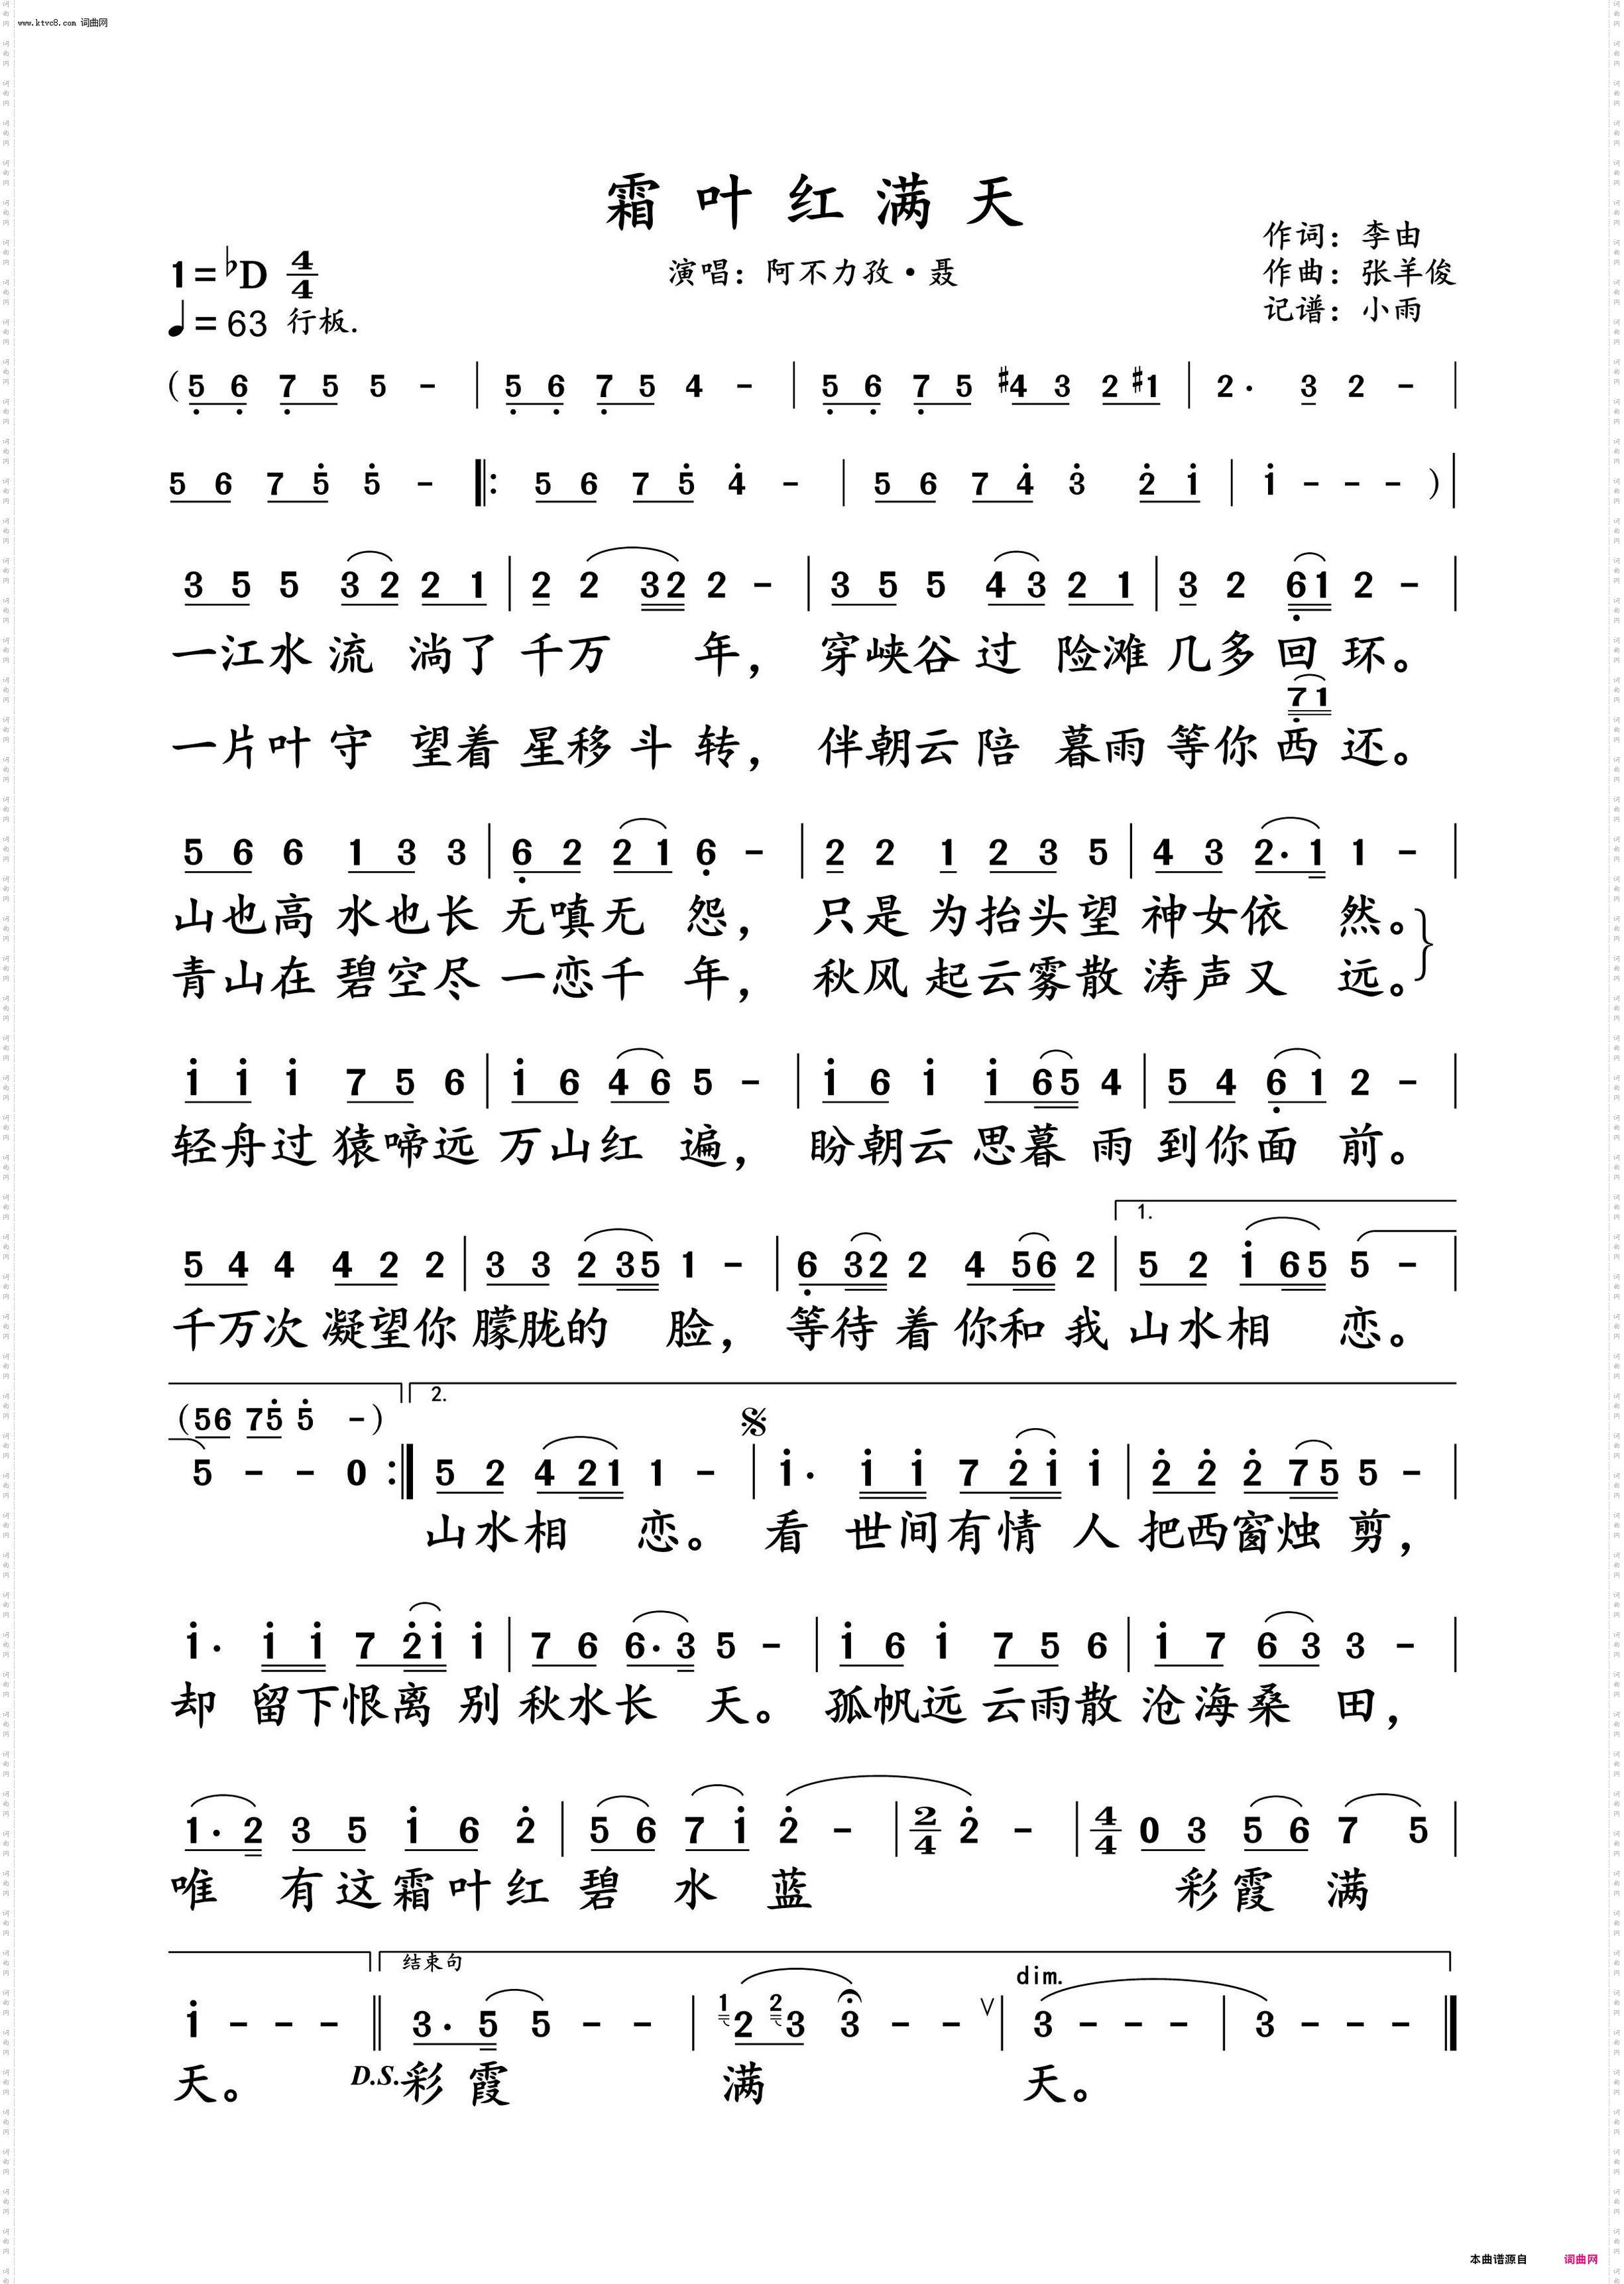 www.ktvc8.com 词曲网
霜叶红满天
作词：李由
1=♭D 4/4
演唱：阿不力孜·聂
作曲：张羊俊
♩=63 行板.
记谱：小雨
(5̣ 6̣ 7̣ 5 5 - | 5̣ 6̣ 7̣ 5 4 - | 5̣ 6̣ 7̣ 5 #4 3 2 #1 | 2· 3 2 - |
5 6 7 5̇ 5̇ - ‖: 5 6 7 5̇ 4̇ - | 5 6 7 4̇ 3̇ 2̇ 1̇ | 1̇ - - - )|
3 5 5 3 2 2 1 | 2 2 32 2 - | 3 5 5 4 3 2 1 | 3 2 6̣1 2 - |
一江水流 淌了千万 年， 穿峡谷过 险滩几多回环。
7̣1
一片叶守 望着星移斗转， 伴朝云陪 暮雨等你西还。
5 6 6 1 3 3 | 6̣ 2 2 1 6̣ - | 2 2 1 2 3 5 | 4 3 2· 1 1 - |
山也高水也长无嗔无 怨， 只是为抬头望神女依 然。
青山在碧空尽一恋千 年， 秋风起云雾散涛声又 远。
1̇ 1̇ 1̇ 7 5 6 | 1̇ 6 4 6 5 - | 1̇ 6 1̇ 1̇ 65 4 | 5 4 6̣ 1 2 - |
轻舟过猿啼远万山红 遍， 盼朝云思暮雨到你面 前。
1.
5 4 4 4 2 2 | 3 3 2 35 1 - | 6̣ 32 2 4 56 2 | 5 2 1̇ 65 5 - |
千万次凝望你朦胧的 脸， 等待着你和我山水相 恋。
2.
(56 75̇ 5̇ -)
5 - - 0 :‖ 5 2 4 21 1 - | 1̇· 1̇ 1̇ 7 2̇ 1̇ 1̇ | 2̇ 2̇ 2̇ 75 5 - |
山水相 恋。 看 世间有情人把西窗烛 剪，
1̇· 1̇ 1̇ 7 2̇1̇ 1̇ | 7 6 6· 3 5 - | 1̇ 6 1̇ 7 5 6 | 1̇ 7 6 3 3 - |
却 留下恨离别秋水长 天。 孤帆远云雨散沧海桑 田，
1· 2 3 5 1̇ 6 2̇ | 5 6 7 1̇ 2̇ - | 2/4 2̇ - | 4/4 0 3 5 6 7 5 |
唯 有这霜叶红碧 水 蓝 彩霞 满
结束句
dim.
1̇ - - - ‖ 3· 5 5 - - | 1 2 2 3 3 - - ∨ | 3 - - - | 3 - - - ‖
天。 D.S. 彩霞 满 天。
本曲谱源自 词曲网